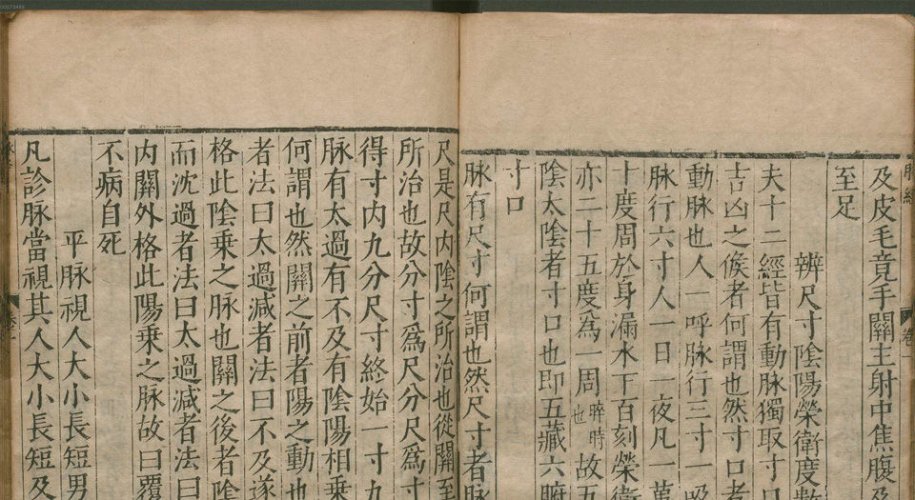 脉經
卷一
及皮毛竟手關主射中焦腹及
至足
辨尺寸陰陽榮衛度數
夫十二經皆有動脉獨取寸
吉凶之候者何謂也然寸口者
動脉也人一呼脉行三寸一吸
脉行六寸人一日一夜凡一萬
十度周於身漏水下百刻榮衛
亦二十五度爲一周晬時也故五
陰太陰者寸口也即五藏六腑
寸口
脉有尺寸何謂也然尺寸者脉
尺是尺内陰之所治也從關至
所治也故分寸爲尺分尺爲寸
得寸内九分尺寸終始一寸九
脉有太過有不及有陰陽相乗
何謂也然關之前者陽之動也
者法曰太過減者法曰不及遂
格此陰乗之脉也關之後者陰
而沈過者法曰太過減者法曰
内關外格此陽乗之脉故曰覆
不病自死
平脉視人大小長短男
凡診脉當視其人大小長短及